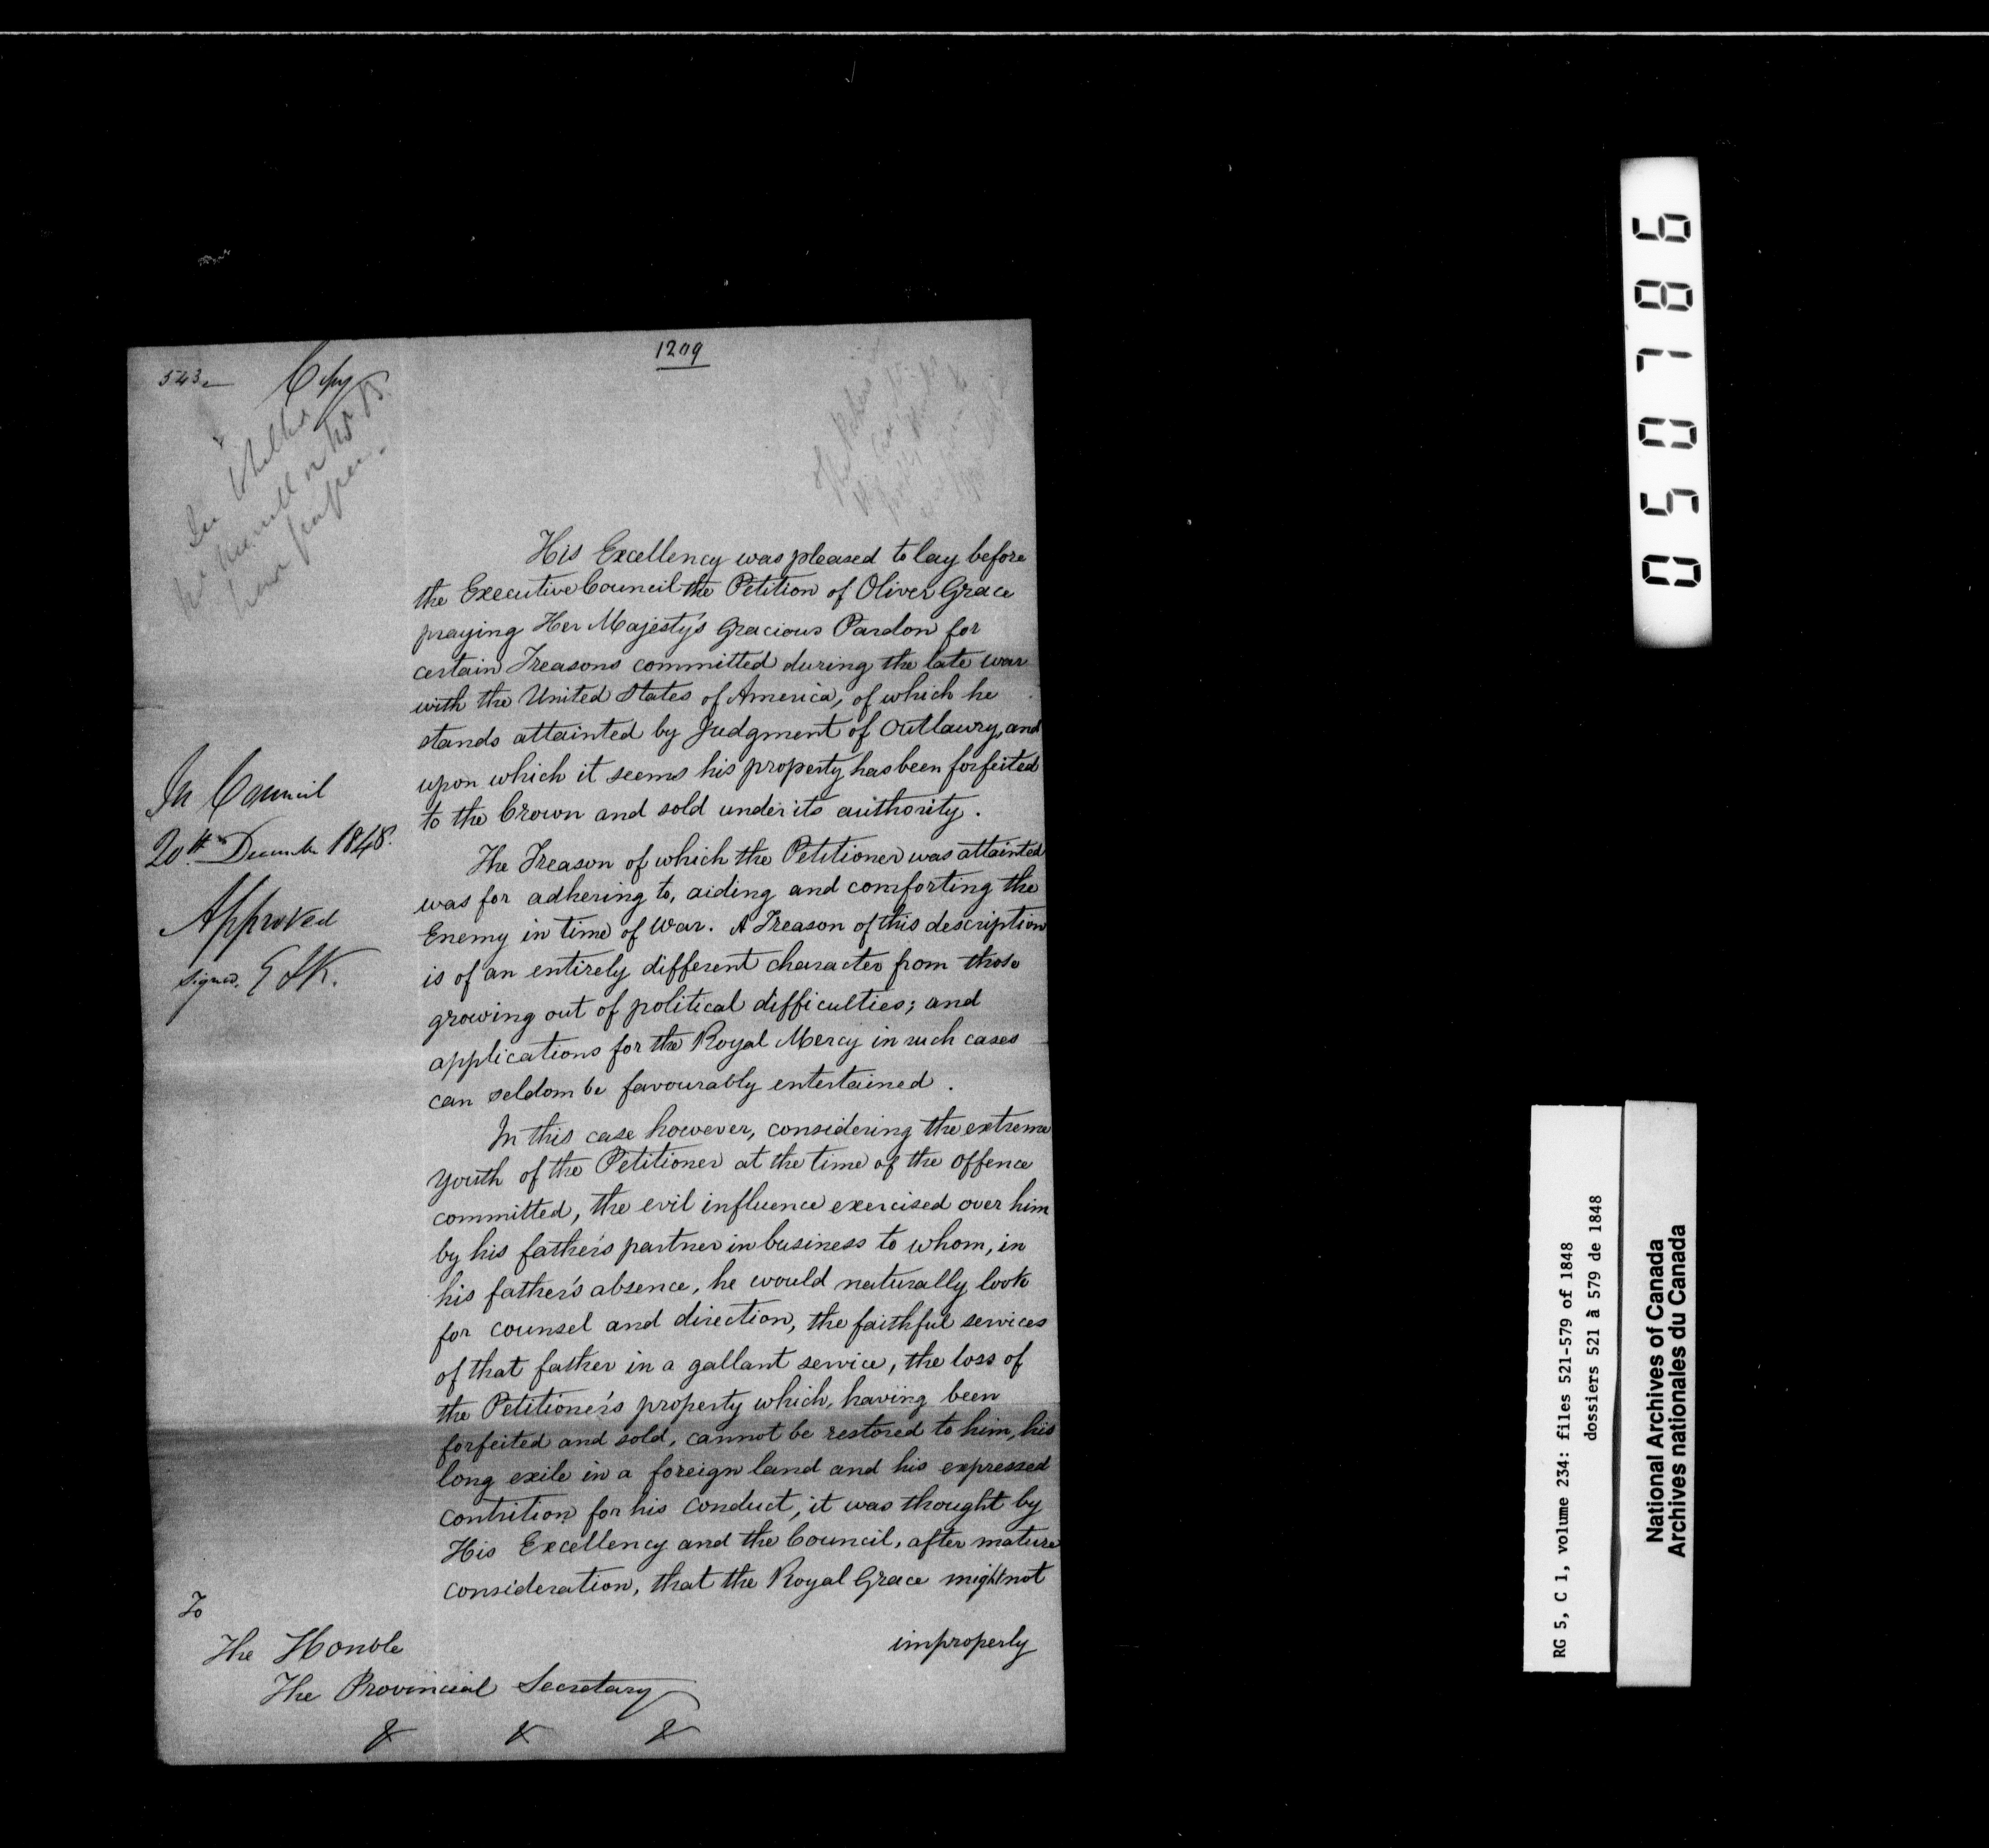 1209
543
Copy
His Excellency was pleased to lay before
the Executive Council the Petition of Oliver Grace
praying Her Majesty's Gracious Pardon for
certain Treasons committed during the late war
with the United States of America, of which he
stands attainted by Judgment of Outlawry, and
upon which it seems his property has been forfeited
to the Crown and sold under its authority.
In Council
20th December 1848.
Approved
signed,
The Treason of which the Petitioner was attainted
was for adhering to, aiding and comforting the
Enemy in time of War. A Treason of this description
is of an entirely different character from those
growing out of political difficulties; and
applications for the Royal Mercy in such cases
can seldom be favourably entertained.
In this case however, considering the extreme
youth of the Petitioner at the time of the offence
committed, the evil influence exercised over him
by his father's partner in business to whom, in
his father's absence, he would naturally look
for counsel and direction, the faithful services
of that father in a gallant service, the loss of
the Petitioner's property which, having been
forfeited and sold, cannot be restored to him, his
long exile in a foreign land and his expressed
contrition for his conduct, it was thought by
His Excellency and the Council, after mature
consideration, that the Royal Grace might not
improperly
To
The Honble
The Provincial Secretary
& & &
050786
RG 5, C 1, volume 234: files 521-579 of 1848
dossiers 521 à 579 de 1848
National Archives of Canada
Archives nationales du Canada